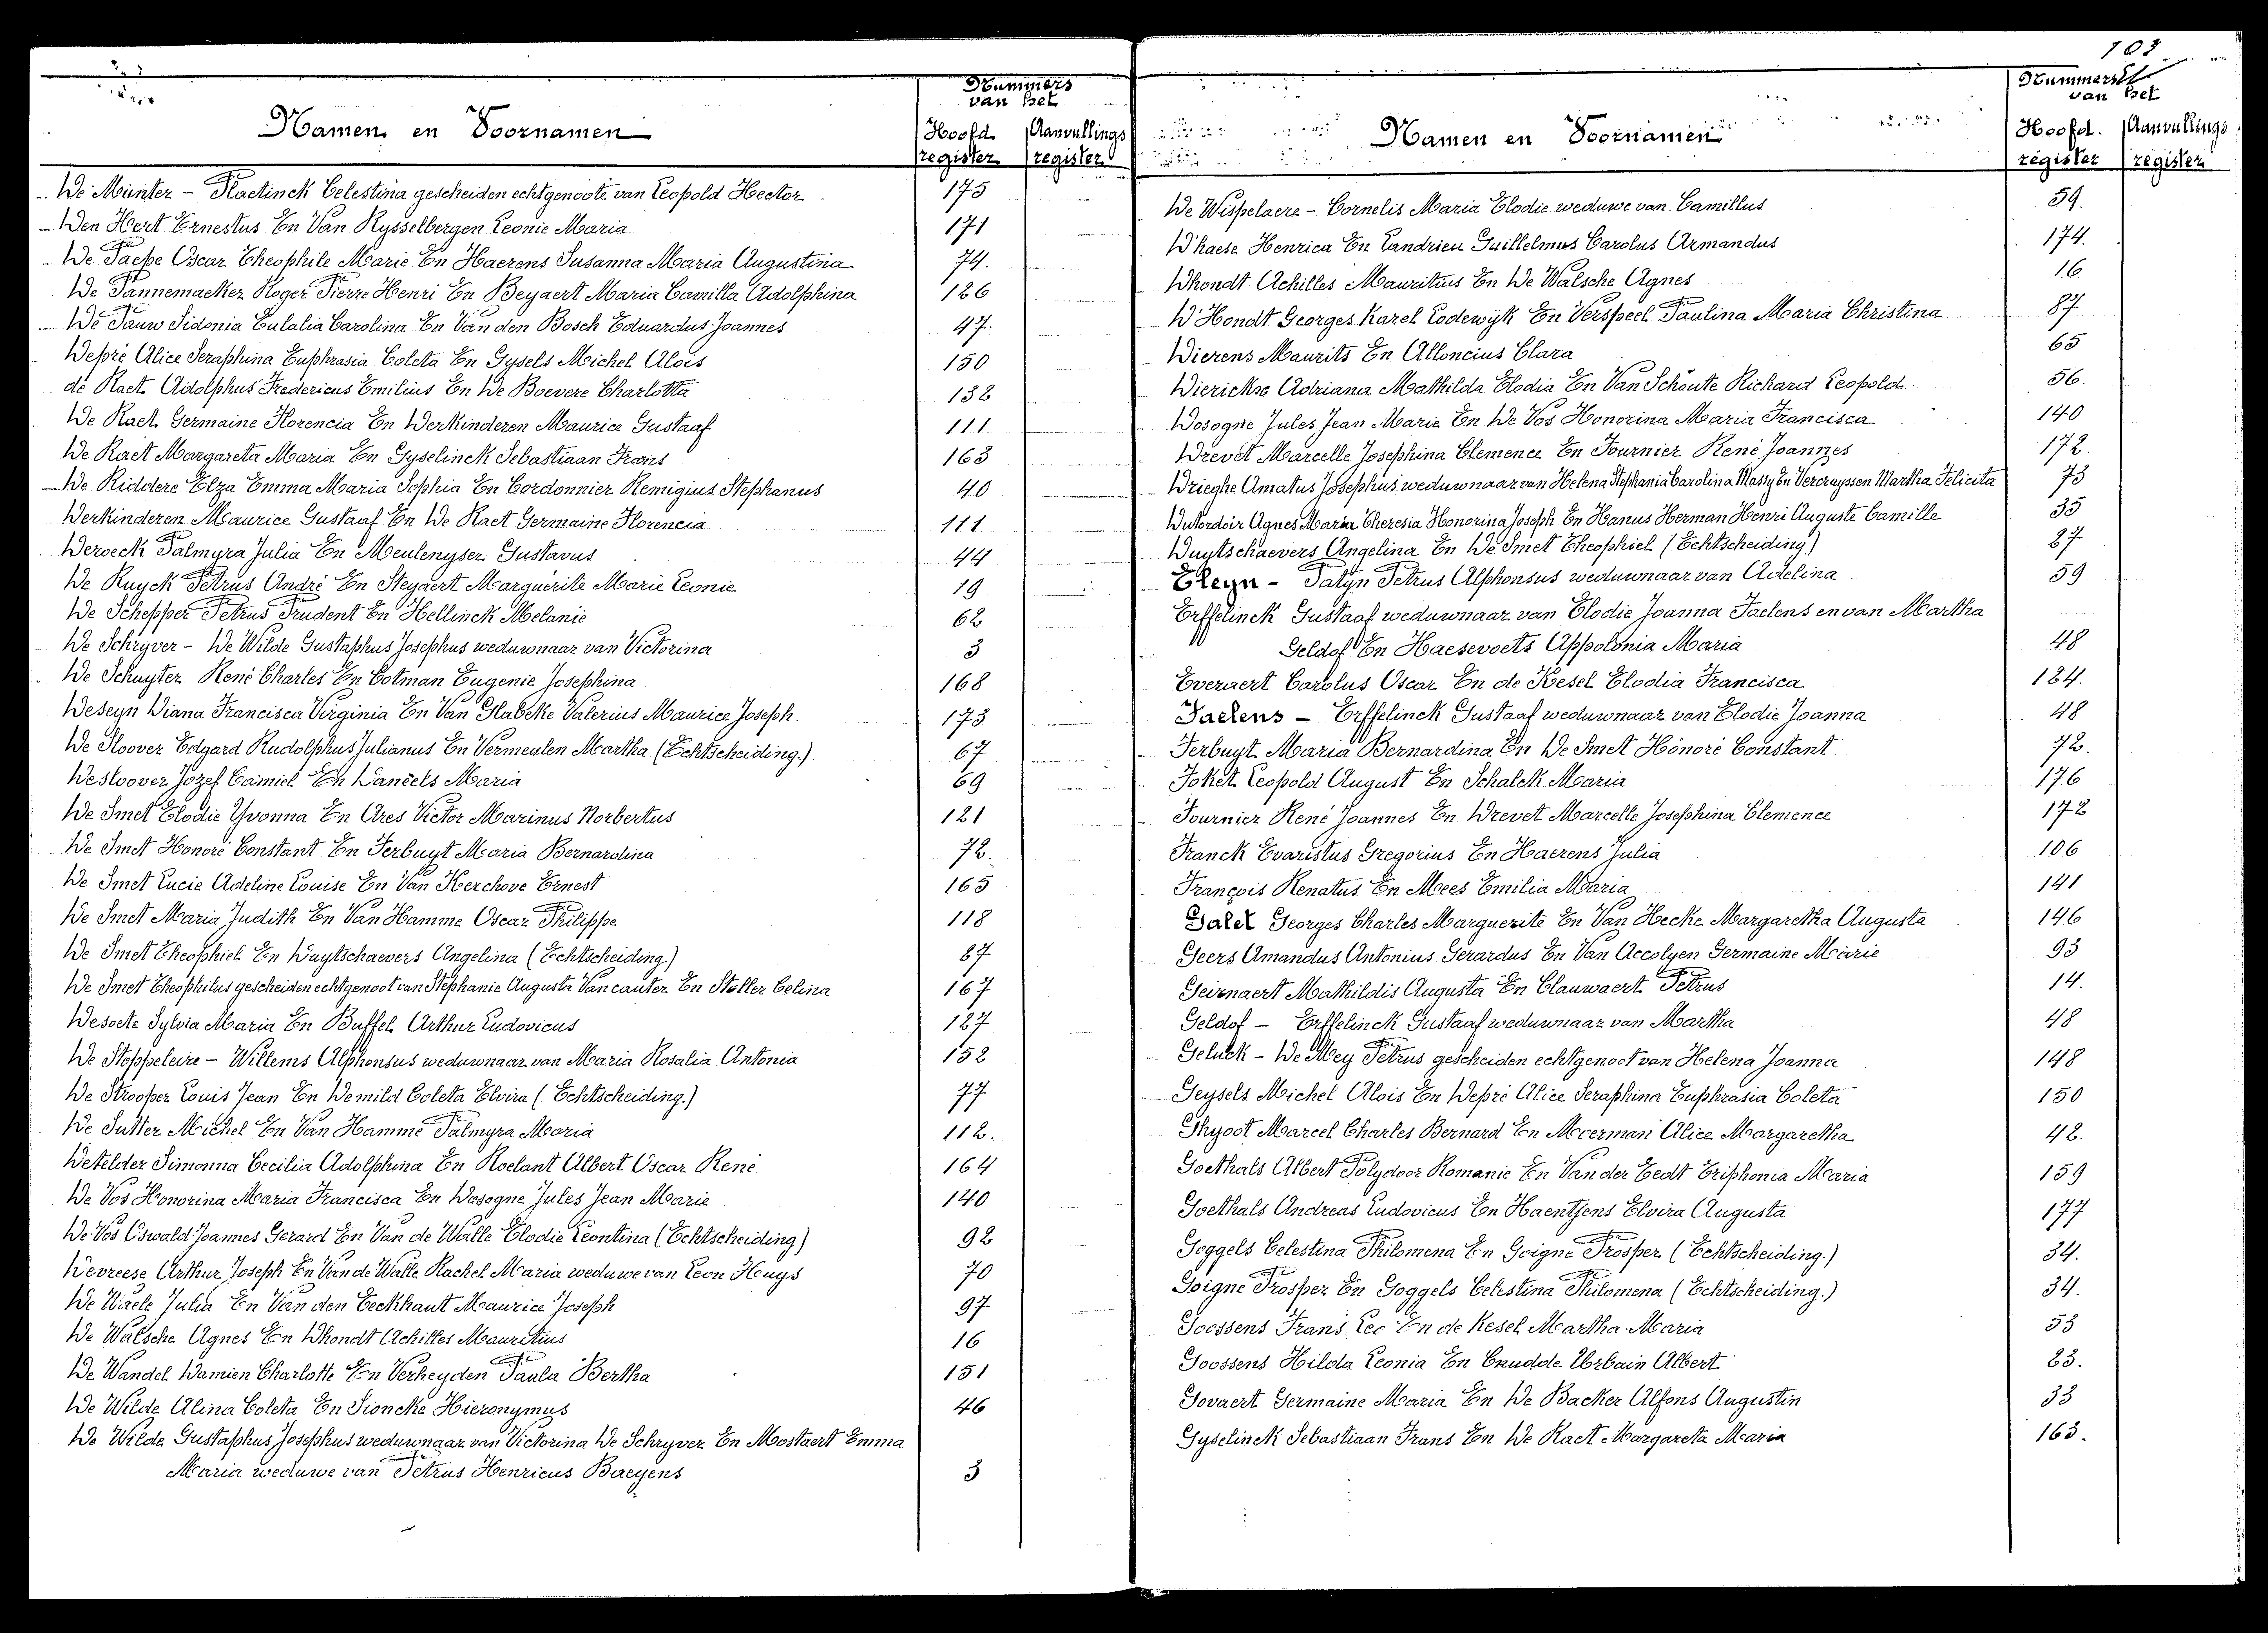 Nummers
van het
Namen en Voornamen
Hoofd. Aanvullings
register register
De Munter - Placlinck Celestina gescheiden echtgenoote van Leopold Hector 175
Den Hert Ernestus En Van Rysselbergen Leonie Maria 171
De Paepe Oscar Theophile Marie En Haerens Susanna Maria Augustina 74.
De Pannemaeker Roger Pierre Henri En Beyaert Maria Camilla Adolphina 126
De Pauw Sidonia Eulalia Carolina En Van den Bosch Eduardus Joannes 47.
Depré Alice Seraphina Euphrasia Coleta En Gysels Michel Alois 150
de Raet Adolphus Fredericus Emilius En De Boevere Charlotta 132
De Raet Germaine Florencia En Derkinderen Maurice Gustaaf 111
De Raet Margareta Maria En Gyselinck Sebastiaan Frans 163
De Riddere Elza Emma Maria Sophia En Cordonnier Remigius Stephanus 40
Derkinderen Maurice Gustaaf En De Raet Germaine Florencia 111
Deroeck Palmyra Julia En Meulenyser Gustavus 44
De Ruyck Petrus André En Steyaert Marguérite Marie Leonie 19
De Schepper Petrus Prudent En Hellinck Melanie 62
De Schryver - De Wilde Gustaphus Josephus weduwnaar van Victorina 3
De Schuyter René Charles En Cotman Eugenie Josephina 168
Deseyn Diana Francisca Virginia En Van Glabeke Valerius Maurice Joseph. 173
De Sloover Edgard Rudolphus Julianus En Vermeulen Martha (Echtscheiding.) 67
Desloover Jozef Camiel En Daneels Maria 69
De Smet Elodie Yvonna En Ares Victor Marinus Norbertus 121
De Smet Honoré Constant En Ferbuyt Maria Bernardina 72.
De Smet Lucie Adeline Louise En Van Kerchove Ernest 165
De Smet Maria Judith En Van Hamme Oscar Philippe 118
De Smet Theophiel En Duytschaevers Angelina (Echtscheiding.) 27
De Smet Theophilus gescheiden echtgenoot van Stephanie Augusta Vancauter En Steller Celina 167
Desoete Sylvia Maria En Buffel Arthur Ludovicus 127
De Steppeleire - Willems Alphonsus weduwnaar van Maria Rosalia Antonia 152
De Strooper Louis Jean En Demild Coleta Elvira (Echtscheiding.) 77
De Sutter Michel En Van Hamme Palmyra Maria 112.
Detelder Simonna Cecilia Adolphina En Roelant Albert Oscar René 164
De Vos Honorina Maria Francisca En Dosogne Jules Jean Marie 140
De Vos Oswald Joannes Gerard En Van de Walle Elodie Leontina (Echtscheiding) 92
Devreese Arthur Joseph En Van de Walle Rachel Maria weduwe van Leon Huys 70
De Waele Julia En Van den Eeckhaut Maurice Joseph 97
De Walsche Agnes En Dhondt Achilles Mauritius 16
De Wandel Damien Charlotte En Verheyden Paula Bertha 151
De Wilde Alina Coleta En Sioncke Hieronymus 46
De Wilde Gustaphus Josephus weduwnaar van Victorina De Schryver En Mostaert Emma
Maria weduwe van Petrus Henricus Baeyens 3
103
Nummers
van het
Namen en Voornamen
Hoofd. Aanvullings
register register
De Wispelaere - Cornelis Maria Elodie weduwe van Camillus 59.
D'haese Henrica En Landrieu Guillelmus Carolus Armandus 174.
Dhondt Achilles Mauritius En De Walsche Agnes 16
D'Hondt Georges Karel Lodewijk En Verspeel Paulina Maria Christina 87
Dierens Maurits En Alloncius Clara 65
Dierickse Adriana Mathilda Elodia En Van Schoute Richard Leopold. 56.
Dosogne Jules Jean Marie En De Vos Honorina Maria Francisca 140
Drevet Marcelle Josephina Clemence En Fournier René Joannes 172.
Drieghe Amatus Josephus weduwnaar van Helena Stephania Carolina Massy En Vercruyssen Martha Felicita 73
Dutordoir Agnes Maria Theresia Honorina Joseph En Hanus Herman Henri Auguste Camille 35
Duytschaevers Angelina En De Smet Theophiel (Echtscheiding) 27
Eleyn - Patyn Petrus Alphonsus weduwnaar van Adelina 59
Erffelinck Gustaaf weduwnaar van Elodie Joanna Faelens en van Martha
Geldof En Haesevoets Appolonia Maria 48
Everaert Carolus Oscar En de Kesel Elodia Francisca 124.
Faelens - Erffelinck Gustaaf weduwnaar van Elodie Joanna 48
Ferbuyt Maria Bernardina En De Smet Honoré Constant 72.
Foket Leopold August En Schalck Maria 176
Fournier René Joannes En Drevet Marcelle Josephina Clemence 172
Franck Evaristus Gregorius En Haerens Julia 106
François Renatus En Mees Emilia Maria 141
Galet Georges Charles Marguerite En Van Hecke Margaretha Augusta 146
Geers Amandus Antonius Gerardus En Van Accolyen Germaine Marie 93
Geirnaert Mathildis Augusta En Clauwaert Petrus 14.
Geldof - Erffelinck Gustaaf weduwnaar van Martha 48
Geluck - De Mey Petrus gescheiden echtgenoot van Helena Joanna 148
Geysels Michel Alois En Depré Alice Seraphina Euphrasia Coleta 150
Ghyoot Marcel Charles Bernard En Moerman Alice Margaretha 42.
Goethals Albert Polydoor Romanie En Van der Eedt Eriphonia Maria 159
Goethals Andreas Ludovicus En Haentjens Elvira Augusta 177
Goggels Celestina Philomena En Goigne Prosper (Echtscheiding.) 34.
Goigne Prosper En Goggels Celestina Philomena (Echtscheiding.) 34.
Goossens Frans Leo En de Kesel Martha Maria 53
Goossens Hilda Leonia En Cnudde Urbain Albert 23.
Govaert Germaine Maria En De Backer Alfons Augustin 33
Gyselinck Sebastiaan Frans En De Raet Margareta Maria 163.